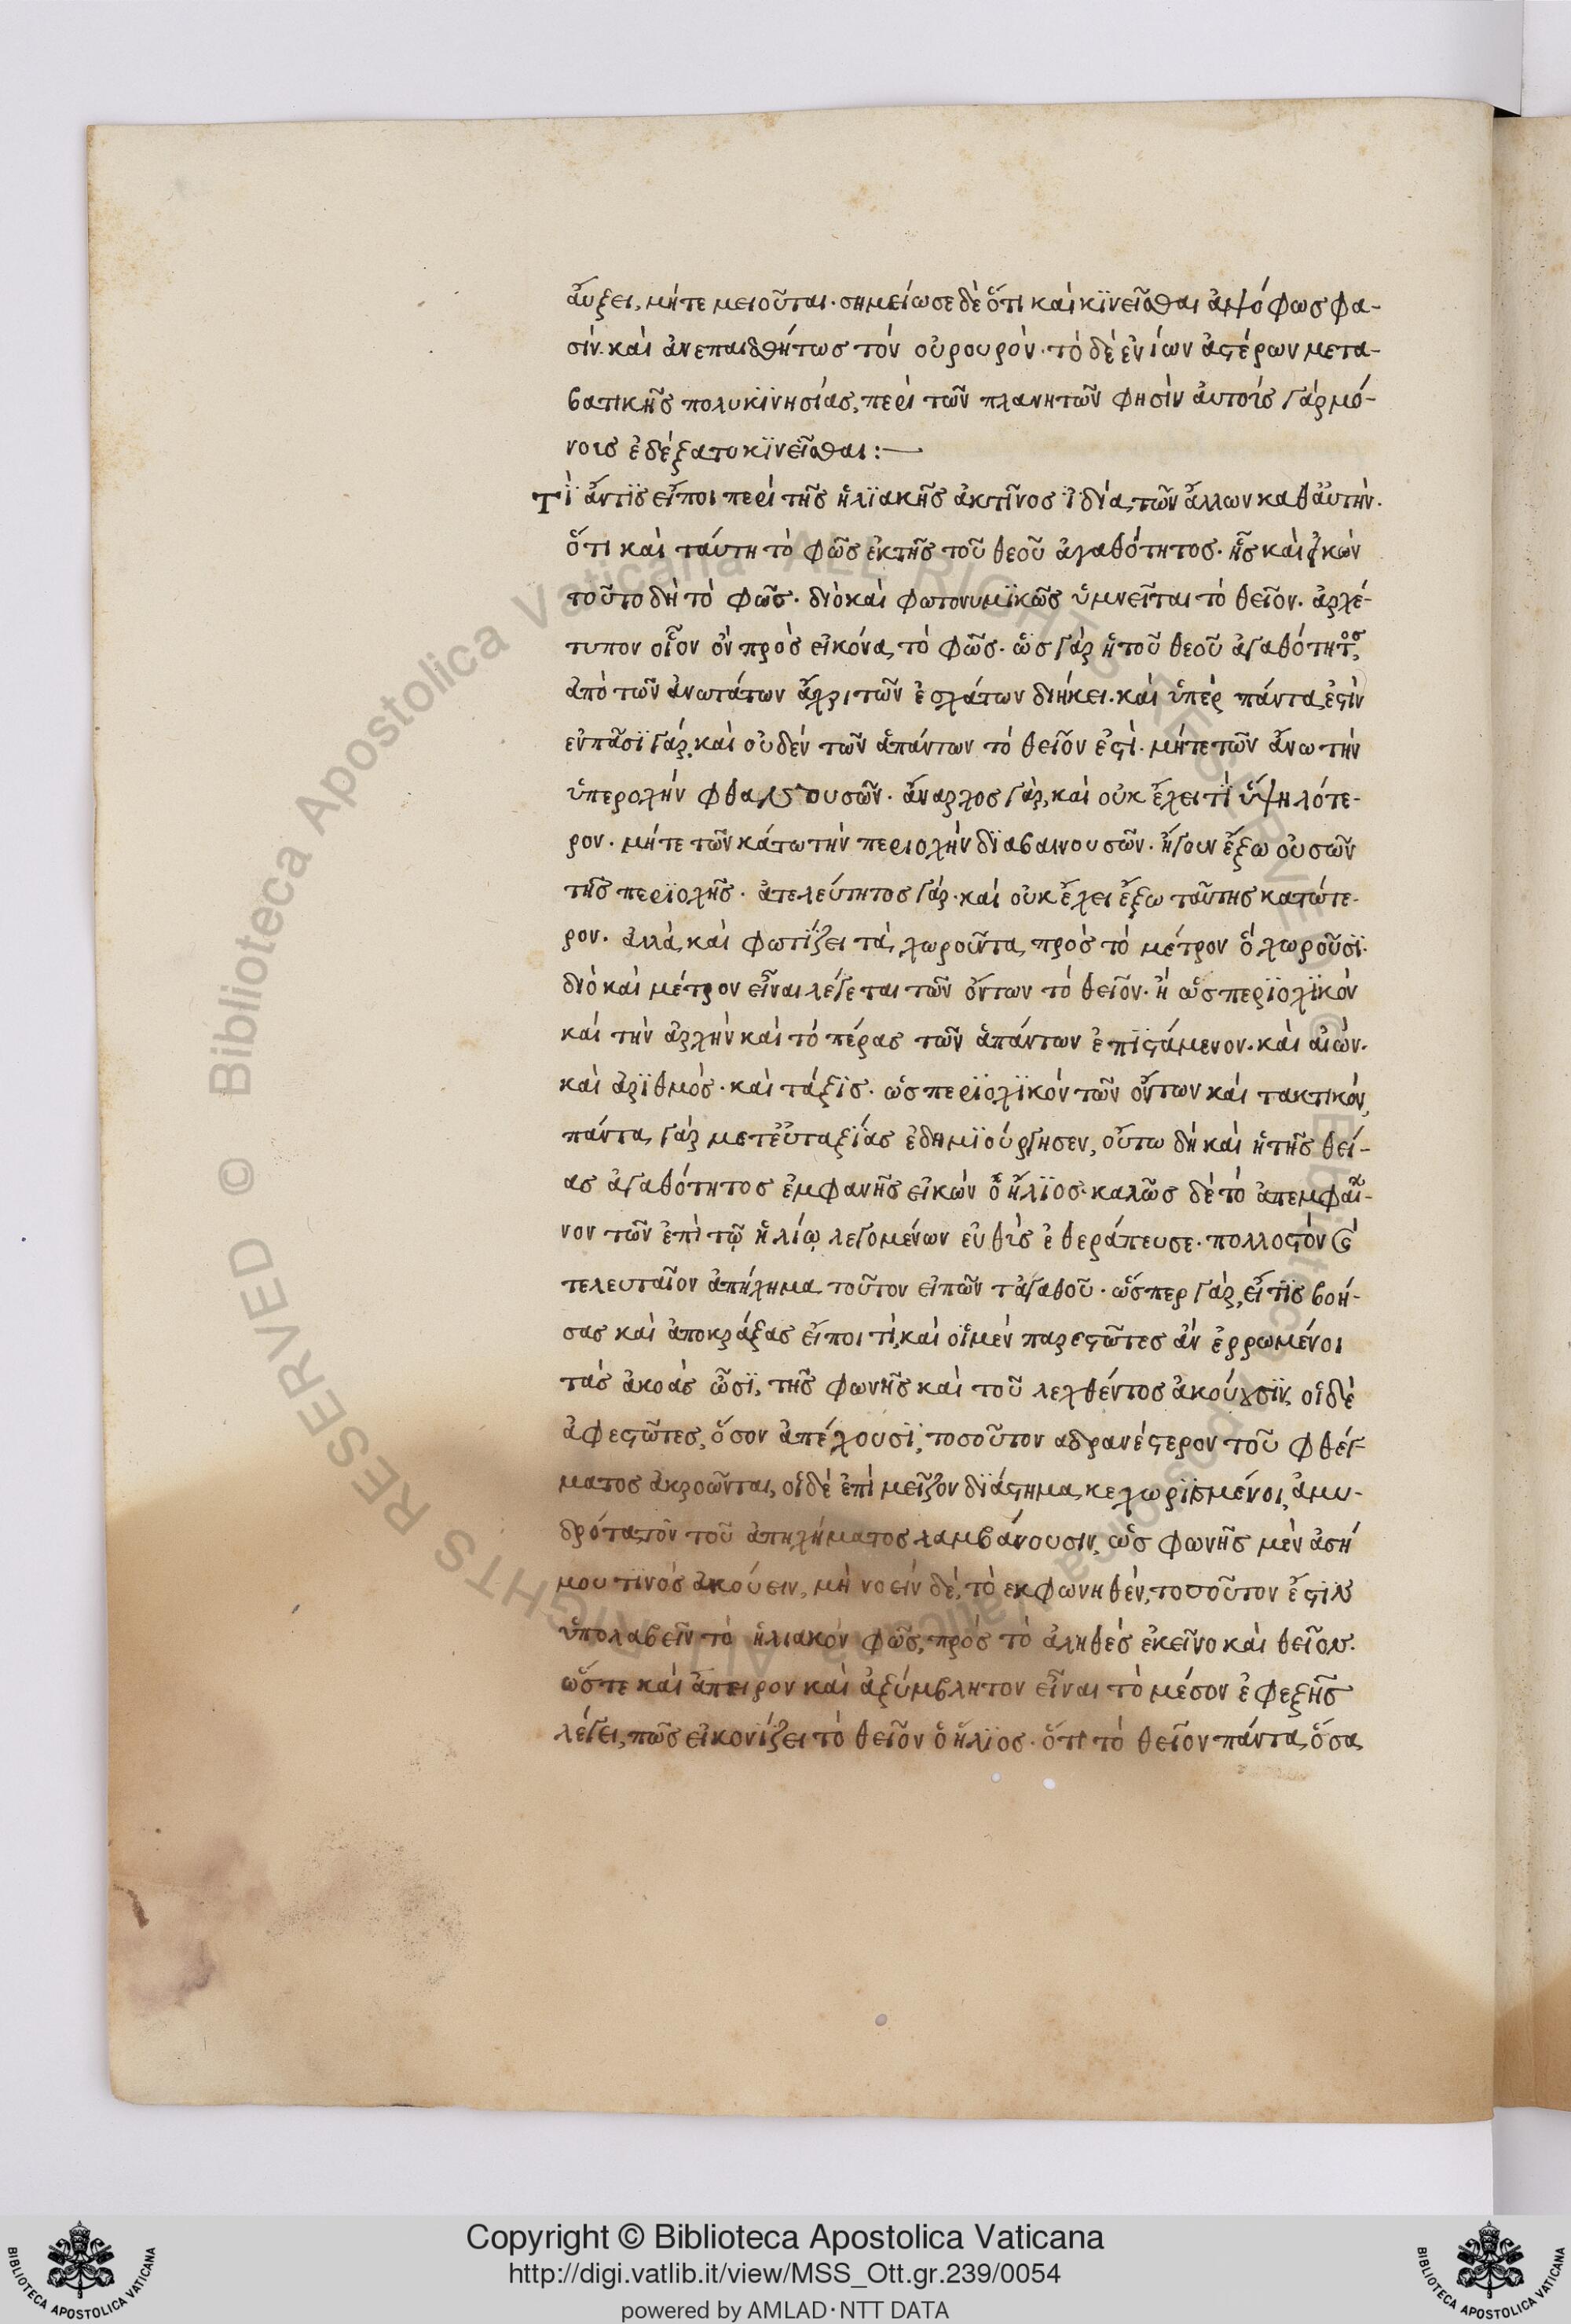 ἄυξει, μήτε μειοῦται· σημείωσε δὲ ὅτι καὶ κϊνεῖσθαι ἀψόφως φα-
σίν. καὶ ἀνεπαισθήτως τὸν οὐρουρὸν· τὸ δὲ ἐνίων ἀστέρων μετα-
βατικῆς πολυκϊνησίας, περὶ τῶν πλανητῶν φησὶν ἀυτοῖς γάρ μό-
νοις ἐδέξατο κϊνεῖσθαι:—
Τὶ ἄντϊς εἴποι περὶ τῆς ἡλϊακῆς ἀκτῖνος ϊδία, τῶν ἄλλων καθ ἀυτὴν.
ὅτι καὶ ταύτη τὸ φῶς ἐκ τῆς τοῦ θεοῦ ἀγαθότητος· ἧς καὶ εἰκὼν
τοῦτο δὴ τὸ φῶς· διὸ καὶ φωτονυμϊκῶς ὑμνεῖται τὸ θεῖον· ἀρχέ-
τυπον οἷον ὂν πρὸς εἰκόνα, τὸ φῶς· ὡς γὰρ ἡ τοῦ θεοῦ ἀγαθότητος,
ἀπὸ τῶν ἀνωτάτων ἄχρι τῶν ἐσχάτων διήκει. καὶ ὑπὲρ πάντα, ἐστὶν
εὐπᾶσϊ γάρ, καὶ οὐδέν τῶν ἁπάντων τὸ θεῖον ἐστὶ· μήτε τῶν ἄνω τὴν
ὑπεροχήν φθανουσῶν· ἄναρχος γὰρ, καὶ οὐκ ἔχει τὶ ὑψηλότε-
ρον· μήτε τῶν κάτω τὴν περιοχὴν δϊαβαινουσῶν· ἤγουν ἔξω οὐσῶν
τῆς περϊοχῆς· ἀτελεύτητος γάρ· καὶ οὐκ ἔχει ἔξω ταύτης κατώτε-
ρον· ἀλλὰ, καὶ φωτίζει τὰ, χωροῦντα, πρὸς τὸ μέτρον ὁ χωροῦσϊ·
διὸ καὶ μέτρον εἶναι λέγεται τῶν ὄντων τὸ θεῖον· ἢ ὡς περϊοχϊκὸν
καὶ τὴν ἀρχὴν καὶ τὸ πέρας τῶν ἁπάντων ἐπϊστάμενον. καὶ αἰών.
καὶ ἀρϊθμός· καὶ τάξϊς· ὡς περϊοχϊκόν τῶν ὄντων καὶ τακτικόν,
πάντα, γὰρ μετ ἐυταξίας ἐδημϊούργησεν, οὕτω δὴ καὶ ἡ τῆς θεί-
ας ἀγαθότητος ἐμφανὴς εἰκὼν ὁ ἥλϊος· καλῶς δὲ τὸ ἀπεμφαῖ-
νον τῶν ἐπὶ τῷ ἡλίῳ λεγομένων ευθὶς ἐθεράπευσε· πολλοστὸν καὶ
τελευταῖον ἀπήχημα, τοῦτον εἰπῶν τἀγαθοῦ· ὥσπερ γὰρ, εἴ τϊς βοή-
σας καὶ ἀποκράξας εἴποι τὶ, καὶ οἱ μὲν παρεστῶτες ἂν ἐρρωμένοι
τὰς ἀκοὰς ὦσϊ, τῆς φωνῆς καὶ τοῦ λεχθέντος ἀκούουσϊν, οἱ δὲ
ἀφεστῶτες, ὅσον ἀπέχουσϊ, τοσοῦτον αδρανέστερον τοῦ φθέγ-
ματος ἀκροῶνται, οἱ δὲ ἐπὶ μεῖζον δϊάστημα, κεχωρϊσμένοι, ἀμυ-
δρότατον τοῦ ἀπηχήματος λαμβάνουσιν, ὡς φωνῆς μὲν ἀσή
μου τϊνὸς ἀκούειν, μὴ νοεὶν δὲ, τὸ εκφωνηθὲν, τοσοῦτον ἔστϊν
ὑπολαβεῖν τὸ ἡλιακόν φῶς, πρὸς τὸ ἀληθὲς ἐκεῖνο καὶ θεῖον.
ὥστε καὶ ἄπειρον καὶ ἀξύμβλητον εἶναι τὸ μέσον ἐφεξῆς
λέγει, πῶς εἰκονίζει τὸ θεῖον ὁ ἥλϊος· ὅτι τὸ θεῖον πάντα, ὅσα,
Copyright © Biblioteca Apostolica Vaticana
http://digi.vatlib.it/view/MSS_Ott.gr.239/0054
powered by AMLAD·NTT DATA
BIBLIOTECA APOSTOLICA VATICANA
BIBLIOTECA APOSTOLICA VATICANA
© Biblioteca Apostolica Vaticana ALL RIGHTS RESERVED
© Biblioteca Apostolica Vaticana ALL RIGHTS RESERVED